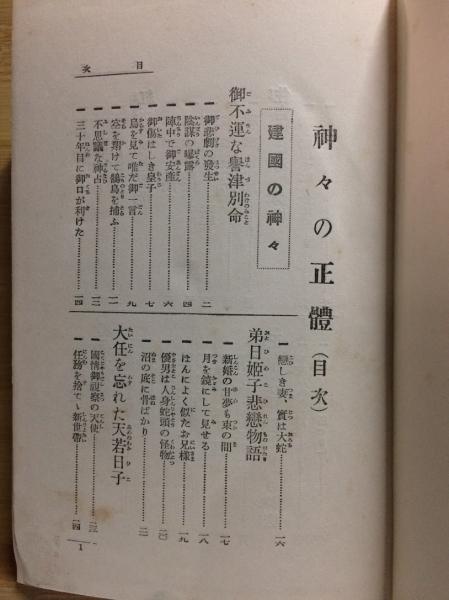 神々の正體(目次)
目次
建國の神々
御不運な譽津別命
御悲劇の發生……二
陰謀の曝露……四
陣中で御安産……六
御傷はしき皇子……七
鳥を見て唯だ御一言……九
空を翔けて鵠鳥を捕ふ……一一
不思議な神占……一二
三十年目に御口が利けた……一四
戀しき妻、實は大蛇……一六
弟日姫子悲戀物語
新婚の甘夢も束の間……一七
月を鏡にして見せる……一八
ほんによく似たお兄樣……一九
優男は人身蛇頭の怪物……二〇
沼の底に骨ばかり……二一
大任を忘れた天若日子
國情御視察の天使……二三
任務を捨てゝ新世帶……二四
1